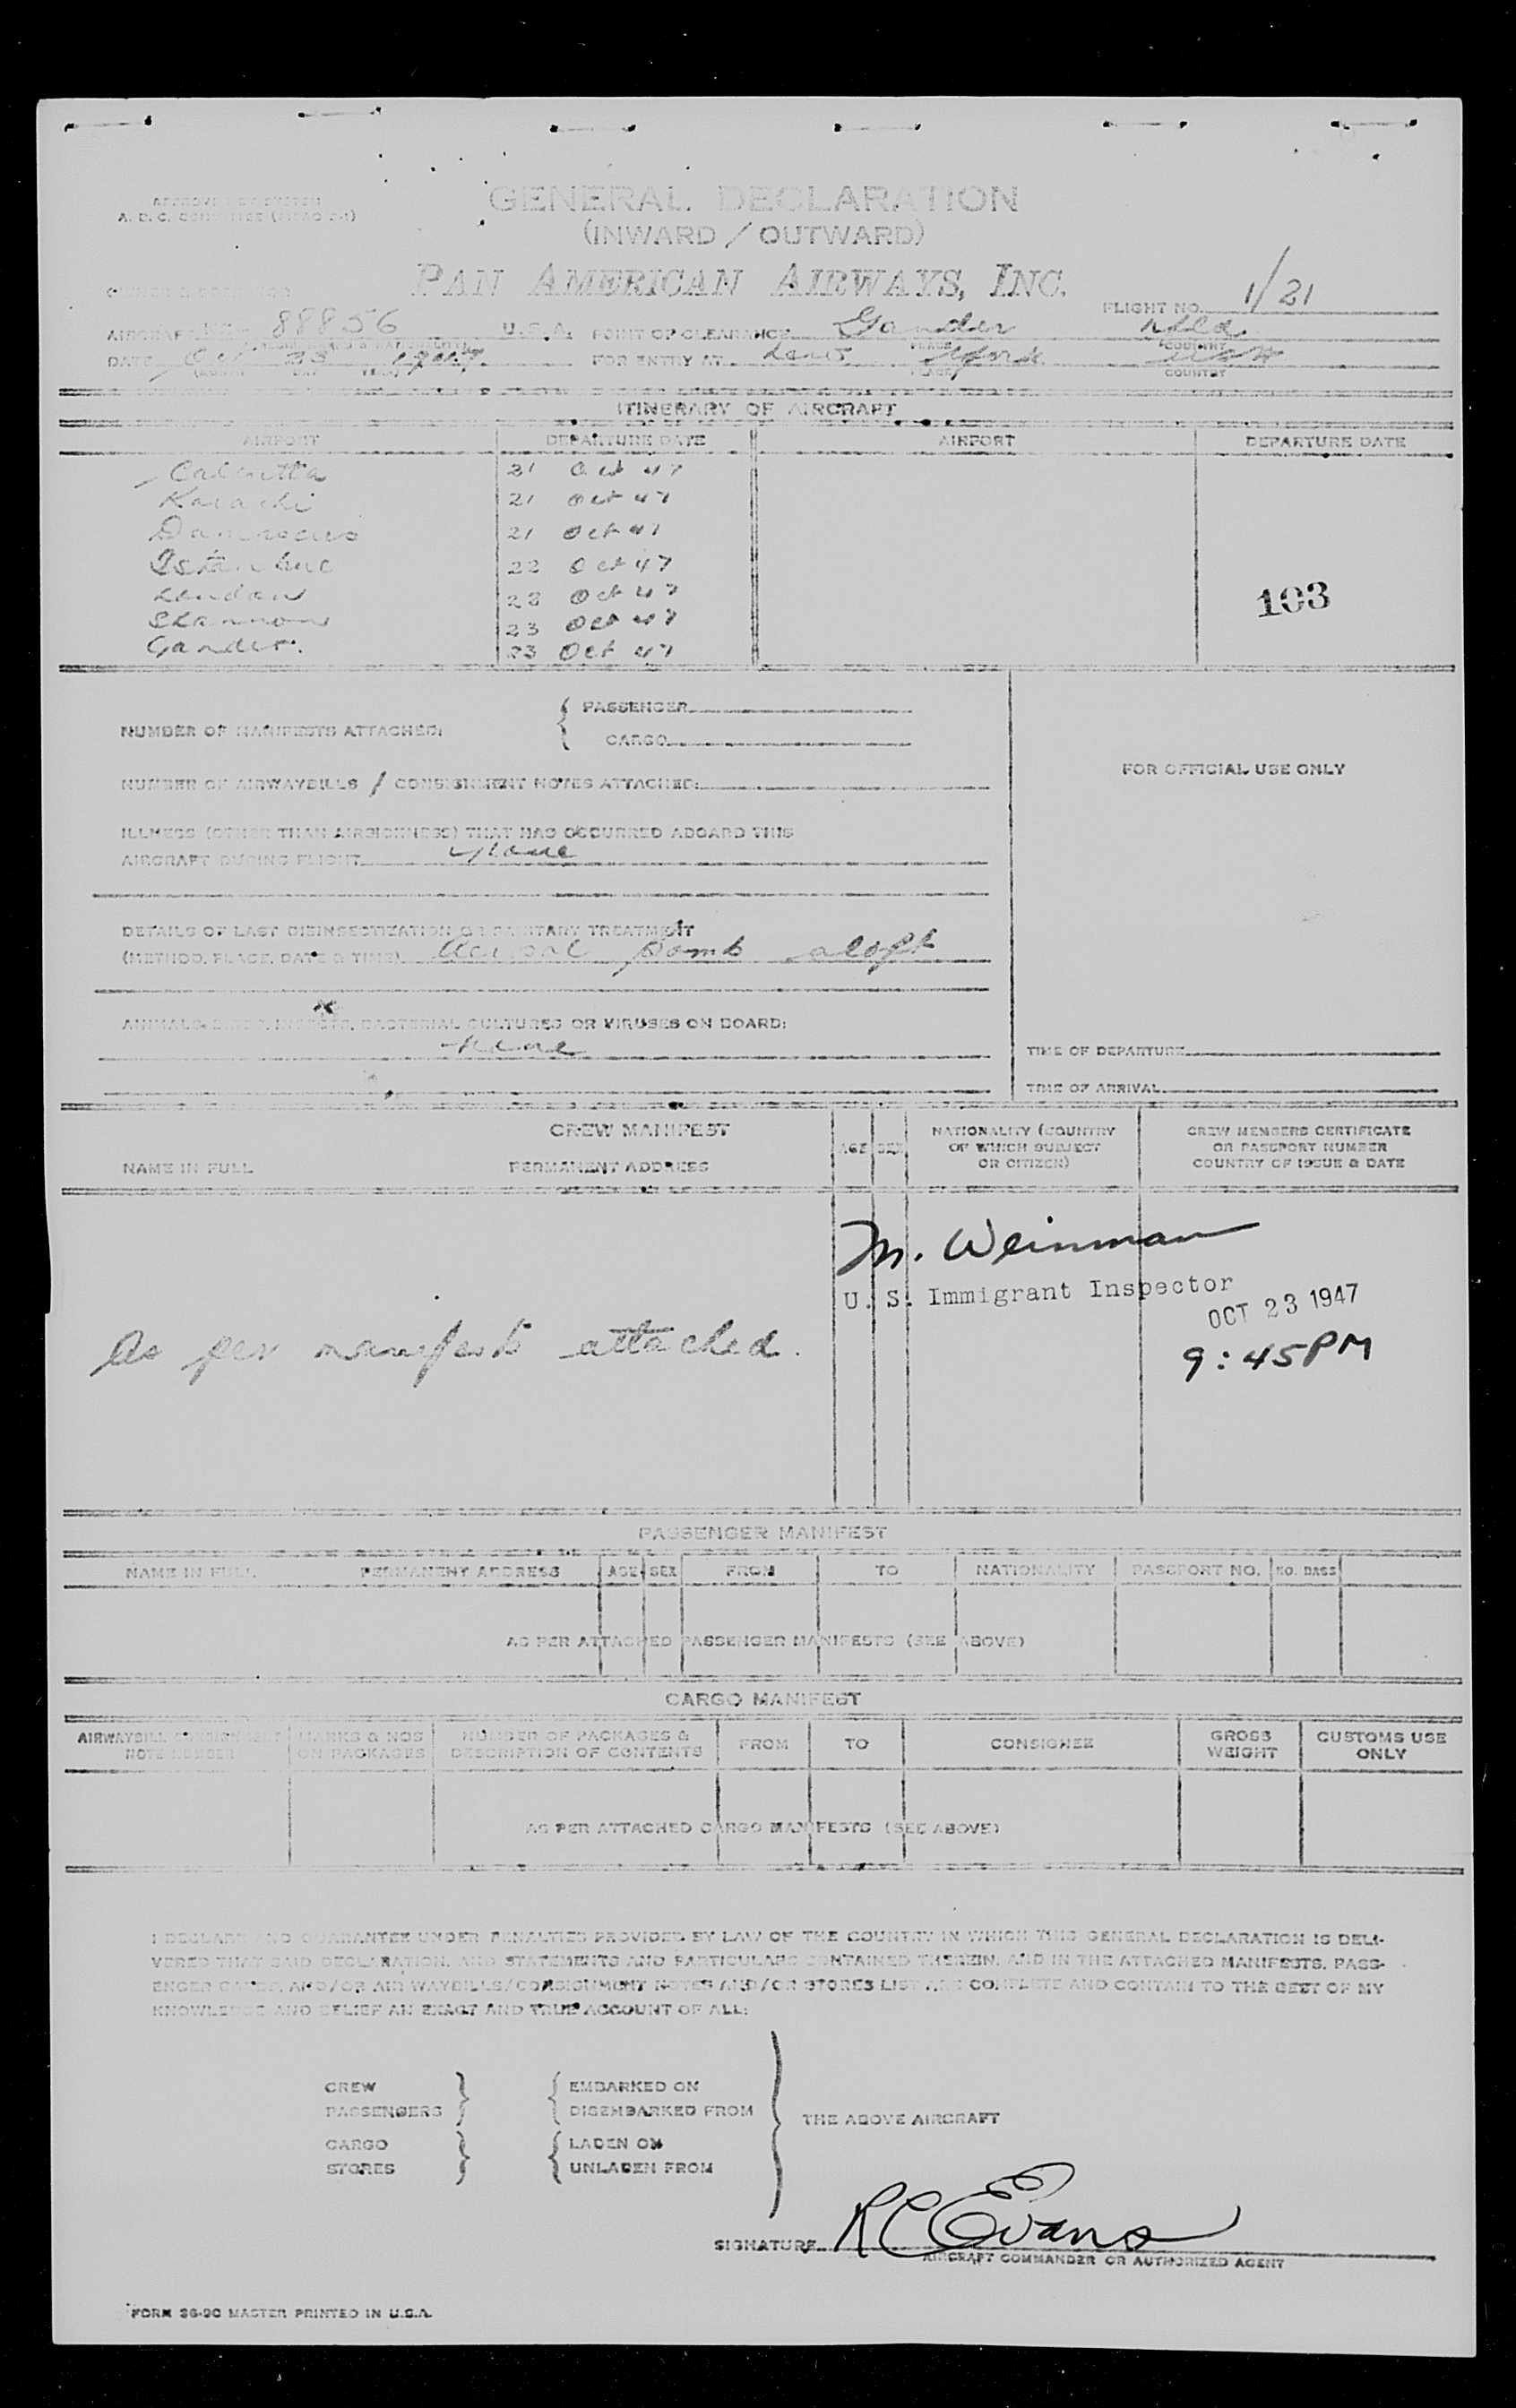 GENERAL DECLARATION
(INWARD / OUTWARD)
PAN AMERICAN AIRWAYS, INC.
FLIGHT NO. 1/21
88856 U.S.A. POINT OF CLEARANCE Gander Nfld.
PLACE COUNTRY
DATE Oct 23 1947. FOR ENTRY AT New York USA
PLACE COUNTRY
ITINERARY OF AIRCRAFT
AIRPORT DEPARTURE DATE AIRPORT DEPARTURE DATE
Calcutta 21 Oct 47
Karachi 21 Oct 47
Damascus 21 Oct 47
Istanbul 22 Oct 47
London 23 Oct 47
Shannon 23 Oct 47
Gander. 23 Oct 47
103
NUMBER OF MANIFESTS ATTACHED:
PASSENGER
CARGO
NUMBER OF AIRWAYBILLS / CONSIGNMENT NOTES ATTACHED:
FOR OFFICIAL USE ONLY
ILLNESS (OTHER THAN AIRSICKNESS) THAT HAS OCCURRED ABOARD THIS
AIRCRAFT DURING FLIGHT None
DETAILS OF LAST DISINSECTIZATION OR SANITARY TREATMENT
(METHOD, PLACE, DATE & TIME) Aerosol bomb aloft
ANIMALS, BIRDS, INSECTS, BACTERIAL CULTURES OR VIRUSES ON BOARD:
None
TIME OF DEPARTURE
TIME OF ARRIVAL
CREW MANIFEST
NAME IN FULL PERMANENT ADDRESS AGE SEX
NATIONALITY (COUNTRY
OF WHICH SUBJECT
OR CITIZEN)
CREW MEMBERS CERTIFICATE
OR PASSPORT NUMBER
COUNTRY OF ISSUE & DATE
M. Weinman
U. S. Immigrant Inspector
OCT 23 1947
9:45PM
As per manifests attached.
PASSENGER MANIFEST
NAME IN FULL PERMANENT ADDRESS AGE SEX FROM TO NATIONALITY PASSPORT NO. NO. BAGS
AS PER ATTACHED PASSENGER MANIFESTS (SEE ABOVE)
CARGO MANIFEST
AIRWAYBILL CONSIGNMENT
NOTE NUMBER
MARKS & NOS
ON PACKAGES
NUMBER OF PACKAGES &
DESCRIPTION OF CONTENTS
FROM TO CONSIGNEE
GROSS
WEIGHT
CUSTOMS USE
ONLY
AS PER ATTACHED CARGO MANIFESTS (SEE ABOVE)
I DECLARE AND GUARANTEE UNDER PENALTIES PROVIDED BY LAW OF THE COUNTRY IN WHICH THIS GENERAL DECLARATION IS DELI-
VERED THAT SAID DECLARATION, AND STATEMENTS AND PARTICULARS CONTAINED THEREIN, AND IN THE ATTACHED MANIFESTS, PASS-
ENGER AND/OR AIR WAYBILLS/CONSIGNMENT NOTES AND/OR STORES LIST ARE COMPLETE AND CONTAIN TO THE BEST OF MY
KNOWLEDGE AND BELIEF AN EXACT AND TRUE ACCOUNT OF ALL:
CREW
PASSENGERS
EMBARKED ON
DISEMBARKED FROM
THE ABOVE AIRCRAFT
CARGO
STORES
LADEN ON
UNLADEN FROM
SIGNATURE RC Evans
AIRCRAFT COMMANDER OR AUTHORIZED AGENT
FORM 36-90 MASTER PRINTED IN U.S.A.